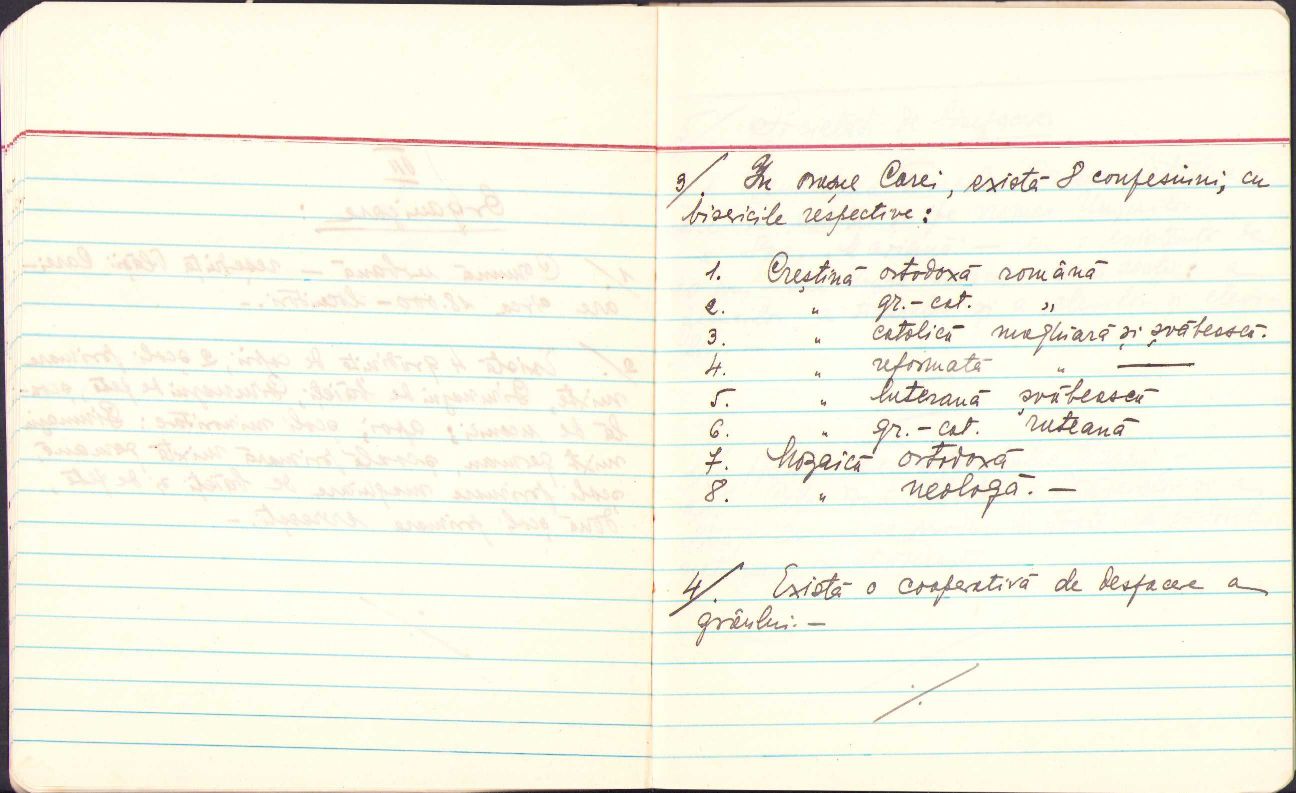 3/. În orașul Carei, există 8 confesiuni, cu
bisericile respective:
1. Creștină ortodoxă română
2. „ gr.-cat. „
3. „ catolică maghiară și șvăbească.
4. „ reformată „ —
5. „ luterană șvăbească
6. „ gr.-cat. ruteană
7. Mozaică ortodoxă
8. „ neologă. —
4/. Există o cooperativă de desfacere a
grâului. —